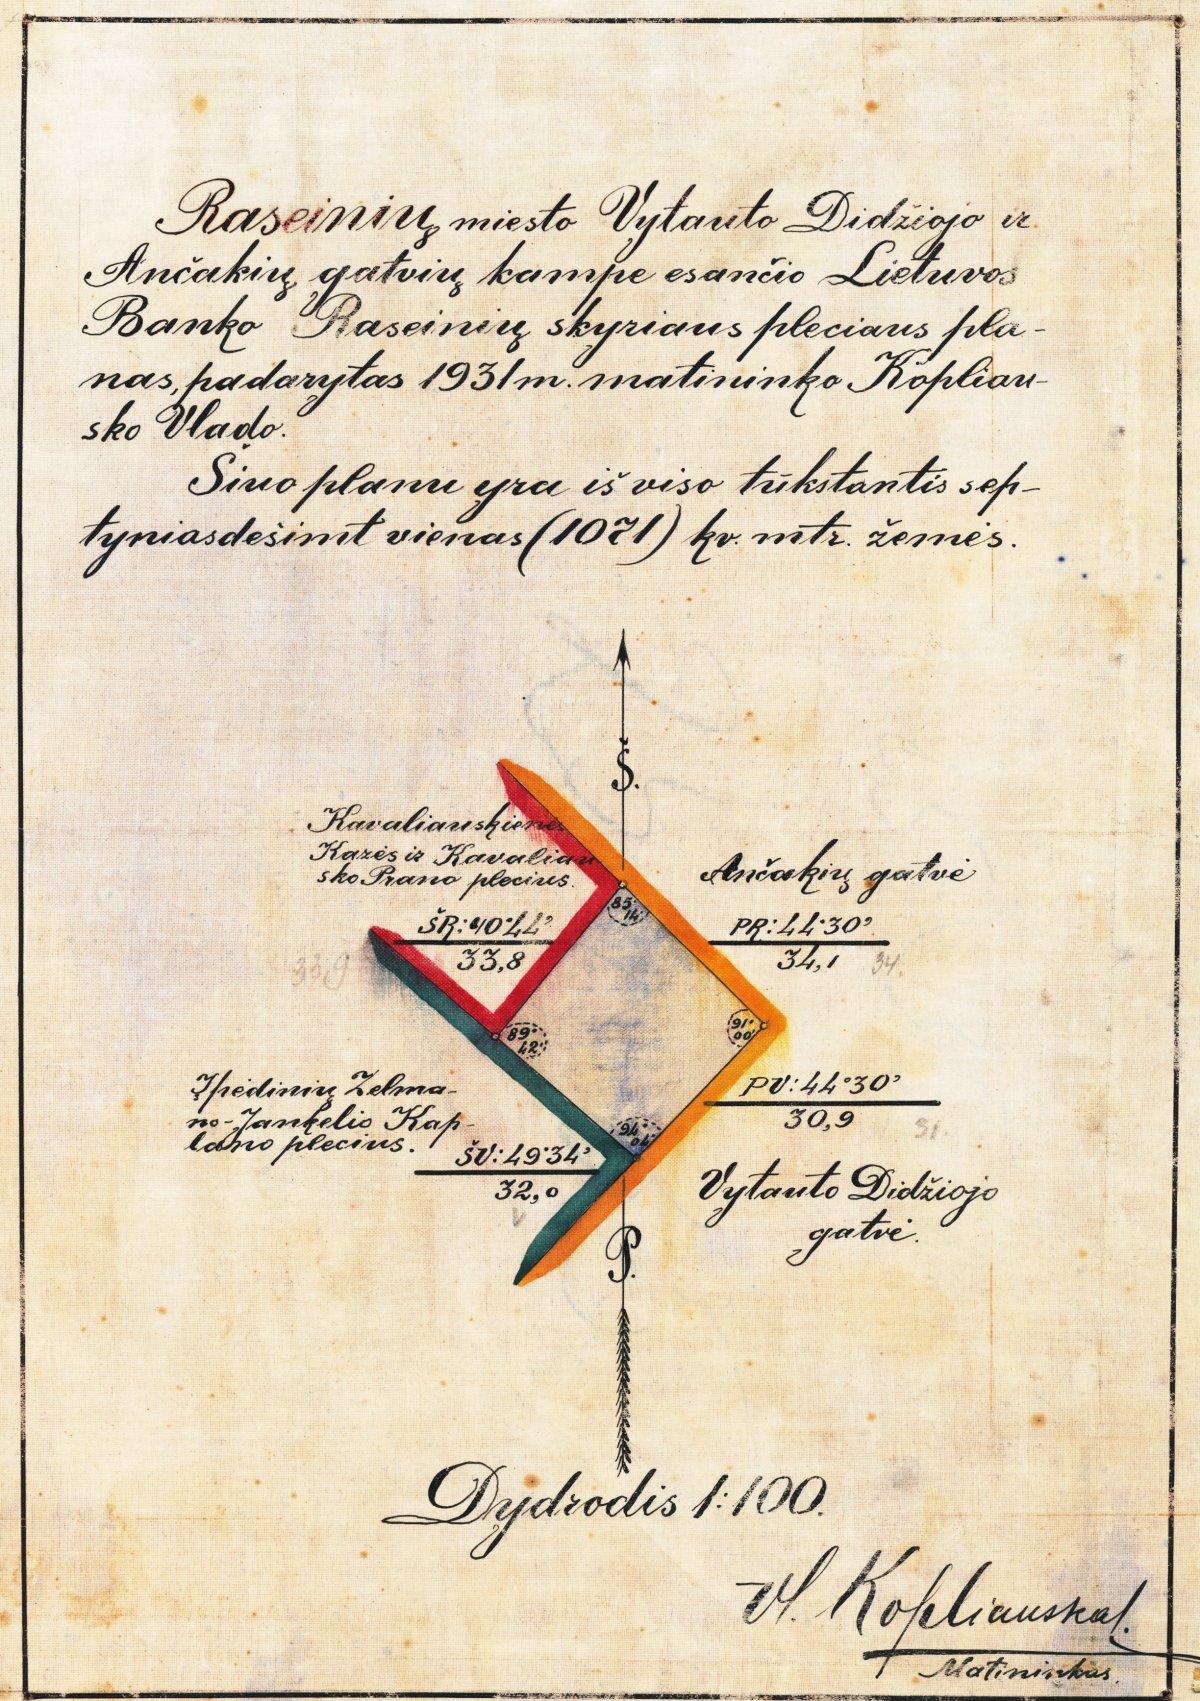 Raseinių miesto Vytauto Didžiojo ir
Ančakių gatvių kampe esančio Lietuvos
Banko Raseinių skyriaus pleciaus pla-
nas, padarytas 1931 m. matininko Kopliau-
sko Vlado.
Šiuo planu yra iš viso tūkstantis sep-
tyniasdešimt vienas (1071) kv. mtr. žemės.
Š.
Kavaliauskienės
Kazės ir Kavaliau
sko Prano plecius.
ŠR: 40°44'
33,8
33,9
Ančakių gatvė
PR: 44°30'
34,1
34.
85°
14'
91°
00'
89°
42'
94°
04'
PV: 44°30'
30,9
31.
Įpėdinių Zelma-
no-Jankelio Kap-
lano plecius.
ŠV: 49°34'
32,0
Vytauto Didžiojo
gatvė.
P.
Dydrodis 1:100.
Vl. Kopliauskas.
Matininkas.